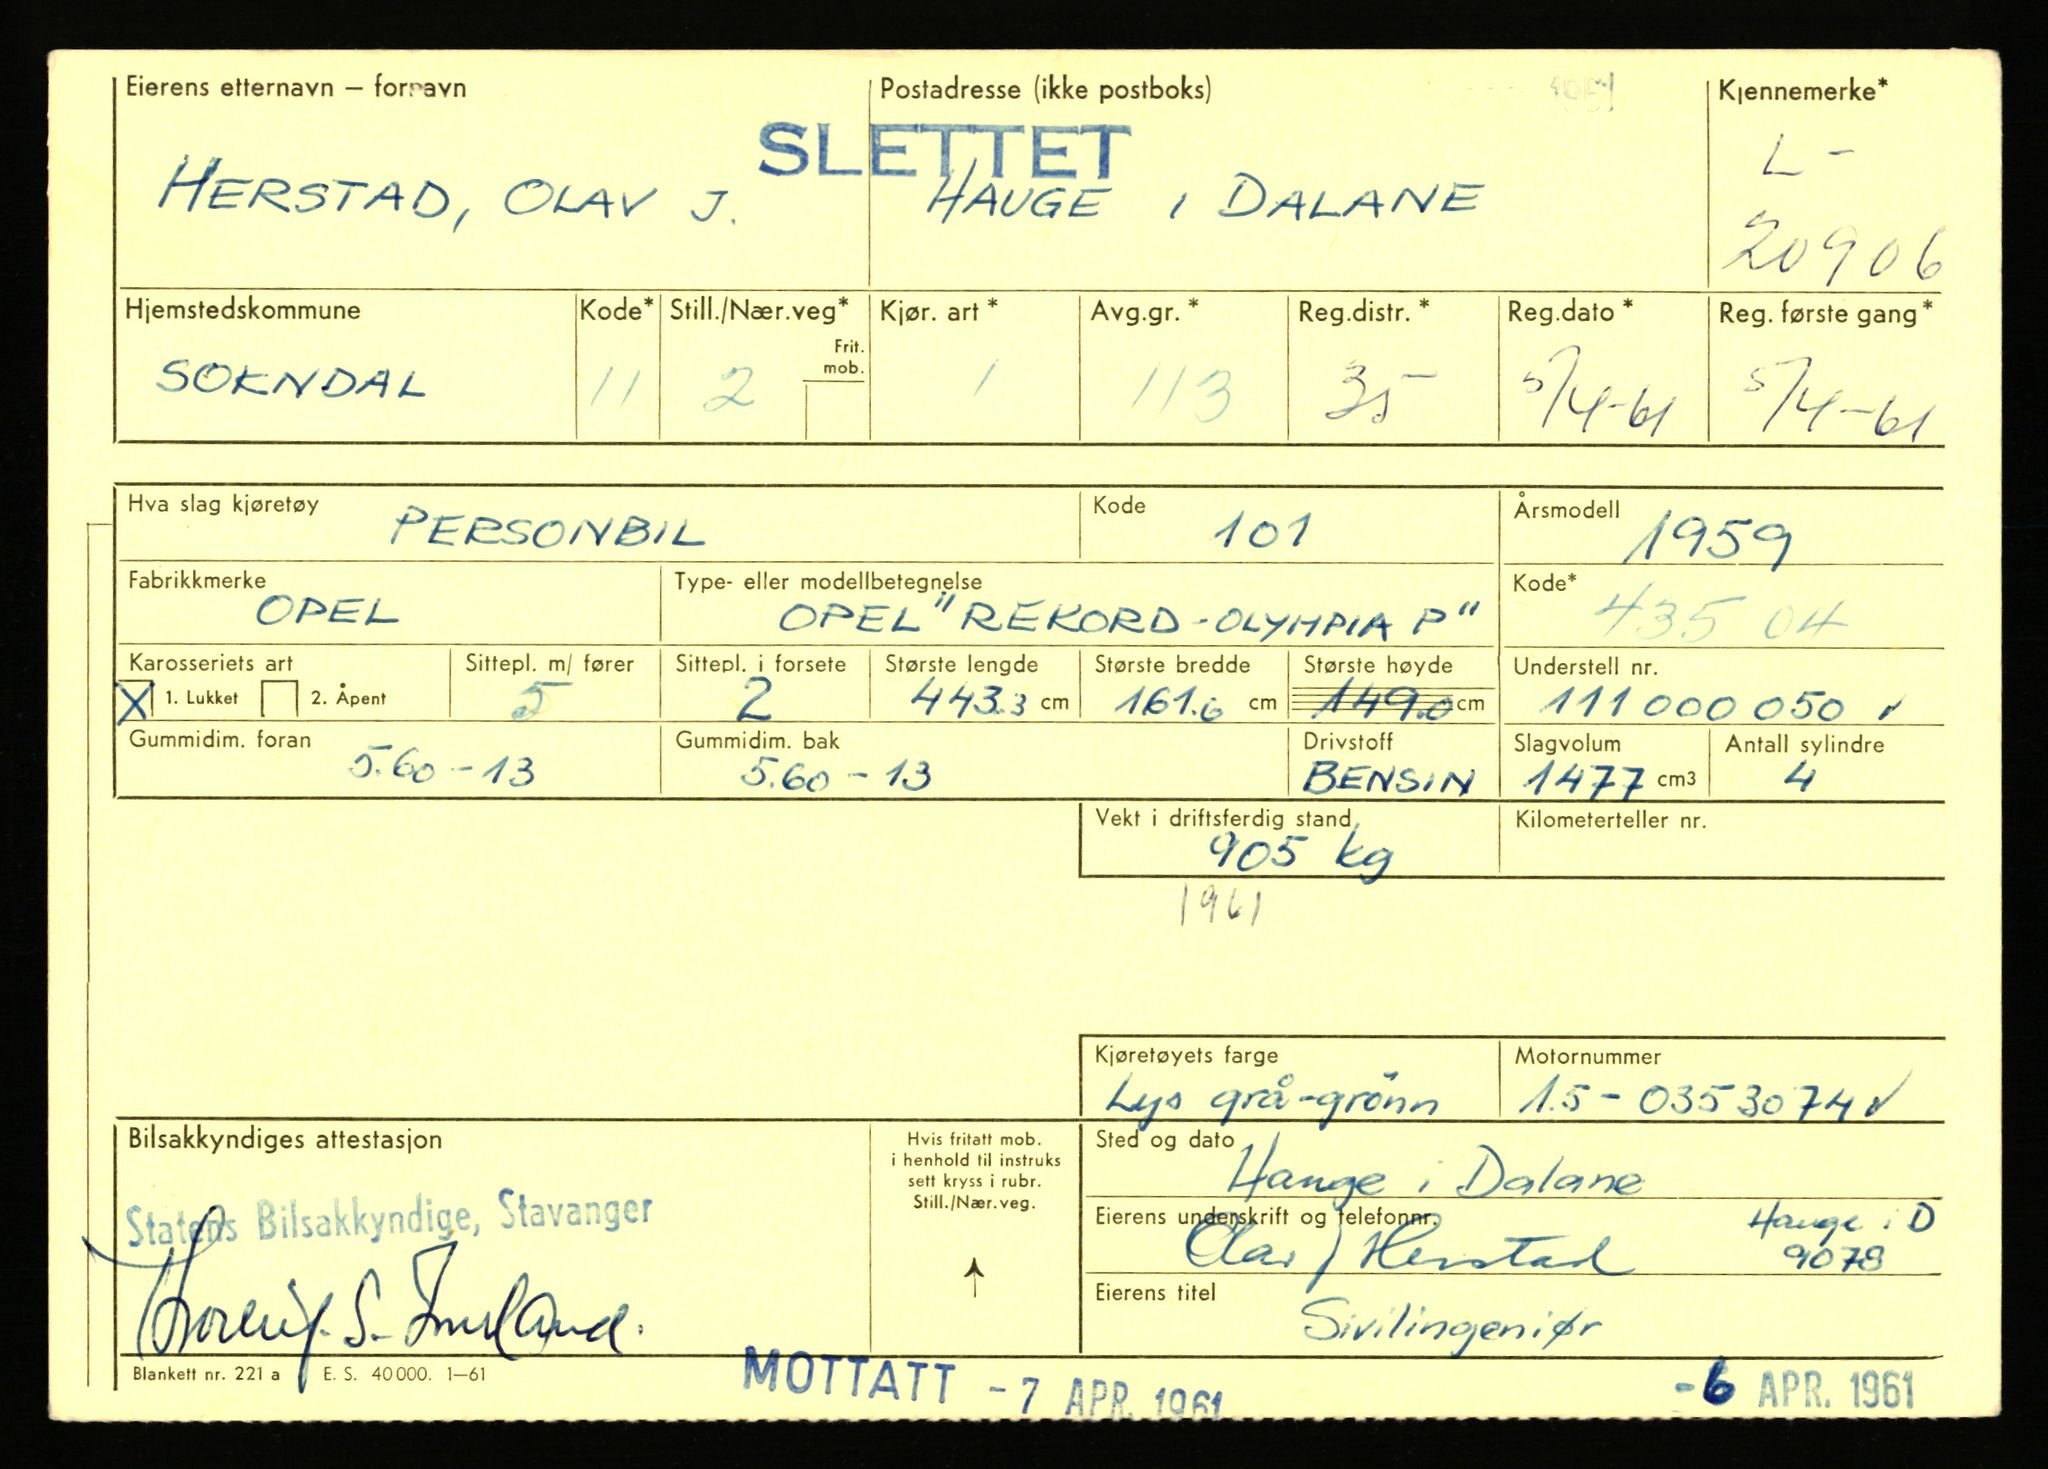 Eierens etternavn – fornavn
Postadresse (ikke postboks)
Kjennemerke*
SLETTET
HERSTAD, OLAV J.
HAUGE I DALANE
L-
20906
Hjemstedskommune
Kode*
Still./Nær.veg*
Frit. mob.
Kjør. art *
Avg.gr. *
Reg.distr. *
Reg.dato *
Reg. første gang*
SOKNDAL
11
2
1
113
35
5/4-61
5/4-61
Hva slag kjøretøy
PERSONBIL
Kode
101
Årsmodell
1959
Fabrikkmerke
OPEL
Type- eller modellbetegnelse
OPEL "REKORD-OLYMPIA P"
Kode*
435 04
Karosseriets art
X 1. Lukket
2. Åpent
Sittepl. m/ fører
5
Sittepl. i forsete
2
Største lengde
443.3 cm
Største bredde
161.6 cm
Største høyde
149.0 cm
Understell nr.
111 000 050 ✓
Gummidim. foran
5.60-13
Gummidim. bak
5.60-13
Drivstoff
BENSIN
Slagvolum
1477 cm3
Antall sylindre
4
Vekt i driftsferdig stand
905 kg
Kilometerteller nr.
1961
Kjøretøyets farge
Lys grå-grönn
Motornummer
1.5-0353074 ✓
Bilsakkyndiges attestasjon
Statens Bilsakkyndige, Stavanger
Hvis fritatt mob.
i henhold til instruks
sett kryss i rubr.
Still./Nær.veg.
Sted og dato
Hauge i Dalane
Eierens underskrift og telefonnr.
Olav J Herstad
Hauge i D
9078
Eierens titel
Sivilingeniør
Blankett nr. 221 a E. S. 40 000. 1–61
MOTTATT -7 APR. 1961
-6 APR. 1961